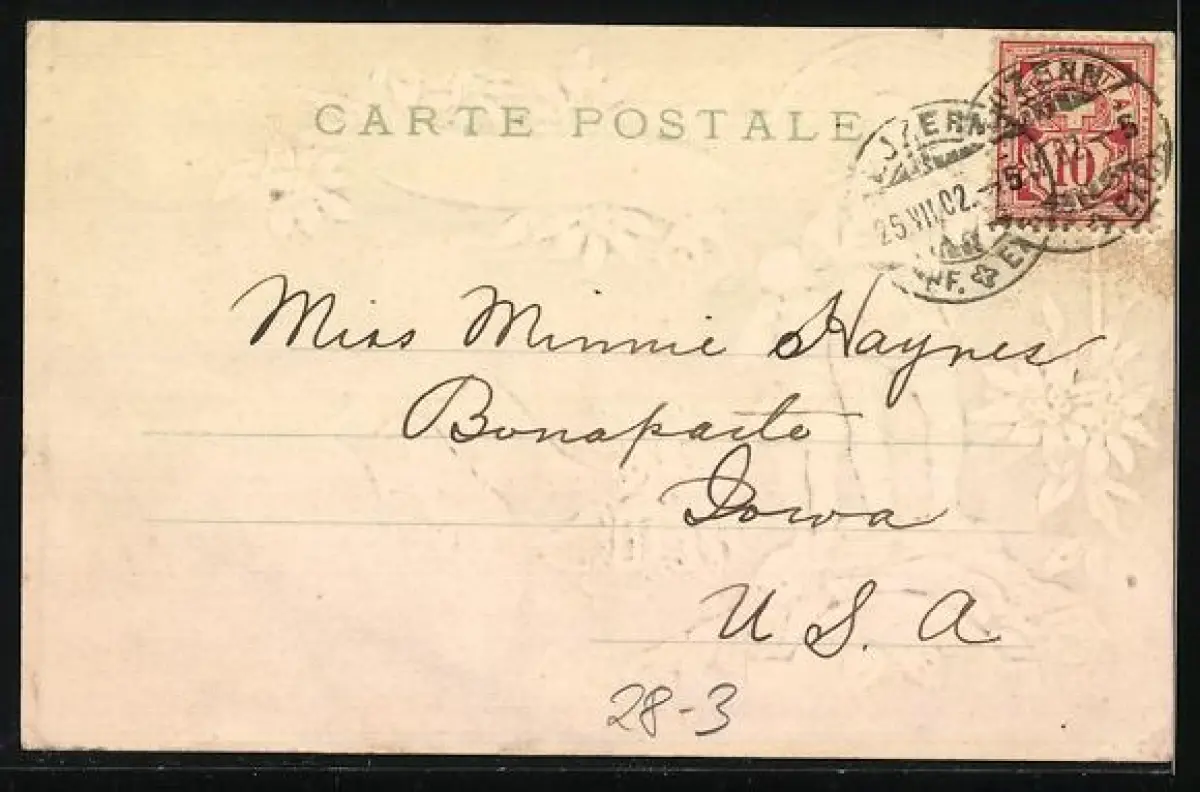 CARTE POSTALE
LUZERN
25.VII.02.-5
10
Miss Minnie Haynes
Bonaparte
Iowa
U. S. A
28-3